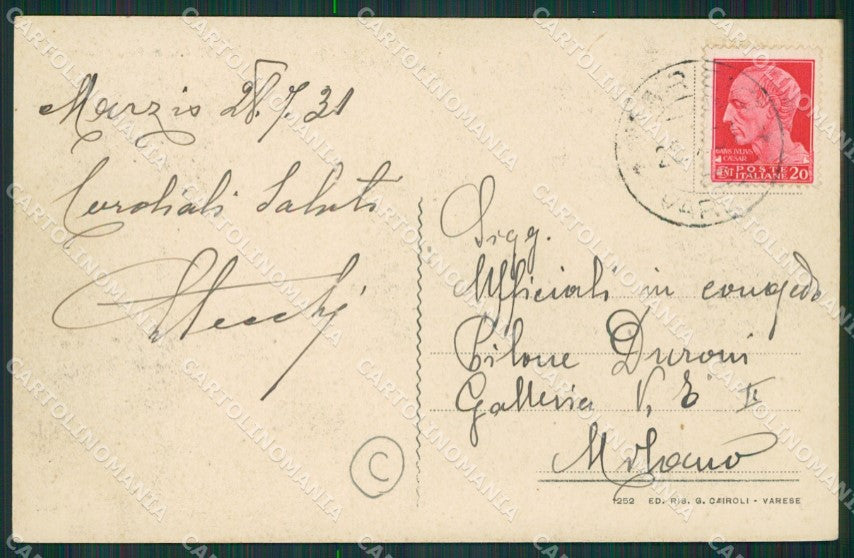 Marzio 28.7.31
Cordiali saluti
Sigg.
Ufficiali in congedo
Pilone Duroni
Galleria V. E II
Milano
C
1252 ED. RIS. G. CAIROLI - VARESE
CAIVS IVLIVS
CAESAR
CENT POSTE
ITALIANE 20
CARTOLINOMANIA